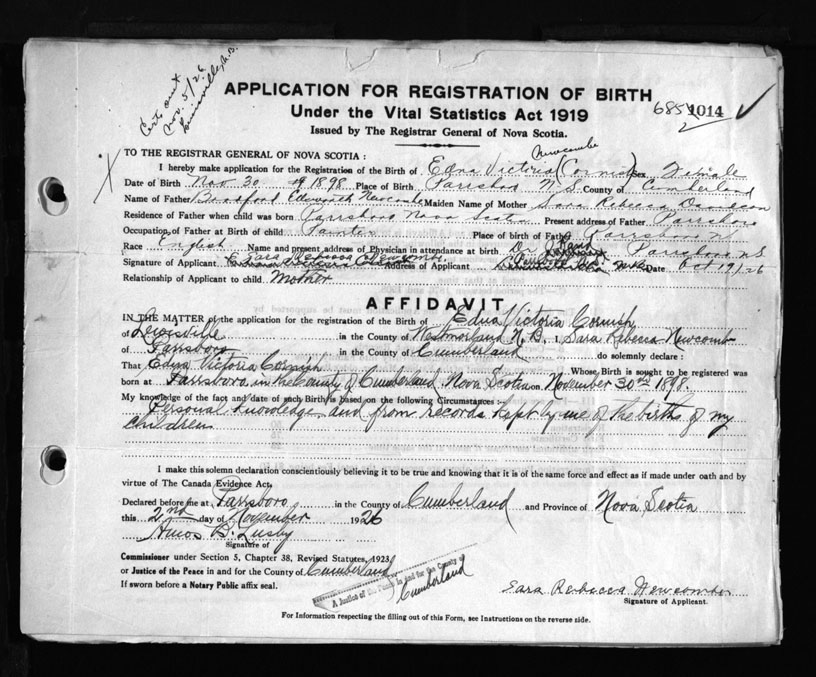 Cert. out
Nov. 5/26
Lewisville, N.B.
APPLICATION FOR REGISTRATION OF BIRTH
Under the Vital Statistics Act 1919
Issued by The Registrar General of Nova Scotia.
685
2
1014
TO THE REGISTRAR GENERAL OF NOVA SCOTIA :
Newcombe
I hereby make application for the Registration of the Birth of Edna Victoria (Cornish) Sex Female
Date of Birth Nov 30 1898 Place of Birth Parrsboro N.S. County of Cumberland
Name of Father Bradford Edsworth Newcombe Maiden Name of Mother Sara Rebecca
Residence of Father when child was born Parrsboro Nova Scotia Present address of Father Parrsboro
Occupation of Father at Birth of child Painter Place of birth of Father Parrsboro N.S.
Race English Name and present address of Physician in attendance at birth Dr. Rand Parrsboro N.S.
Signature of Applicant Sara Rebecca Newcombe Address of Applicant Date Oct 19/26
Relationship of Applicant to child Mother
AFFIDAVIT
IN THE MATTER of the application for the registration of the Birth of Edna Victoria Cornish
of Lewisville in the County of Westmorland N.B. I, Sara Rebecca Newcomb
of Parrsboro in the County of Cumberland do solemnly declare :
That Edna Victoria Cornish Whose Birth is sought to be registered was
born at Parrsboro in the County of Cumberland Nova Scotia on November 30th 1898.
My knowledge of the fact and date of such Birth is based on the following Circumstances :—
Personal knowledge and from records kept by me of the births of my
children
I make this solemn declaration conscientiously believing it to be true and knowing that it is of the same force and effect as if made under oath and by
virtue of The Canada Evidence Act.
Declared before me at Parrsboro in the County of Cumberland and Province of Nova Scotia
this 2nd day of November 1926
Amos B. Lusby
Signature of
Commissioner under Section 5, Chapter 38, Revised Statutes, 1923,
or Justice of the Peace in and for the County of Cumberland
If sworn before a Notary Public affix seal.
A Justice of the Peace in and for the County of
Cumberland
Sara Rebecca Newcombe
Signature of Applicant.
For Information respecting the filling out of this Form, see Instructions on the reverse side.